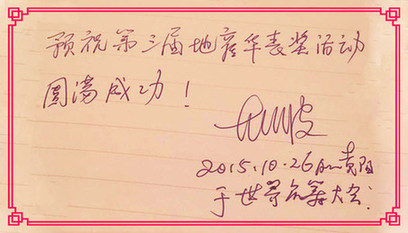 预祝第三届地产华表奖活动
圆满成功！
2015.10.26 贵阳
于世界 大会